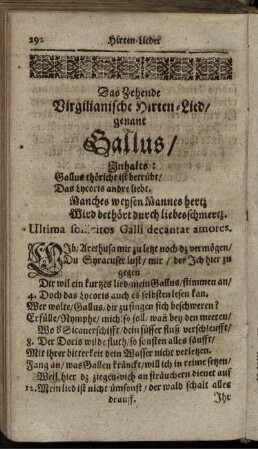 292 Hirten-Lieder
Das Zehende
Virgilianische Hirten-Lied/
genant
Gallus/
Inhalts:
Gallus thöricht ist betrübt/
Das Lycoris andre liebt.
Manches weysen Mannes hertz
Wird bethört durch liebesschmertz.
Ultima sollicitos Galli decantat amores.
Gib/ Arethusa mir zu letzt noch dz vermögen/
Du Syracuser lust/ mir/ der Ich hier zu
gegen
Dir wil ein kurtzes lied mein Gallus/ stimmen an/
4. Doch das Lycoris auch es selbsten lesen kan.
Wer wolte/ Gallus/ dir zu singen sich beschweren?
Erfülle/ Nymphe/ mich/ so soll/ wañ bey den meeren/
Wo s' Sicanerschifft/ dein süsser fluß verschleufft/
8. Der Doris wilde fluth/ so sonsten alles säufft/
Mit ihrer bitterkeit dein Wasser nicht verletzen.
Fang an/ was Gallen kränckt/ will ich in reime setzen/
Weil hier dz ziegen-vich an sträuchern dienet auf
12. Mein lied ist nicht umsonst/ der wald schalt alles
drauff.
Ihr